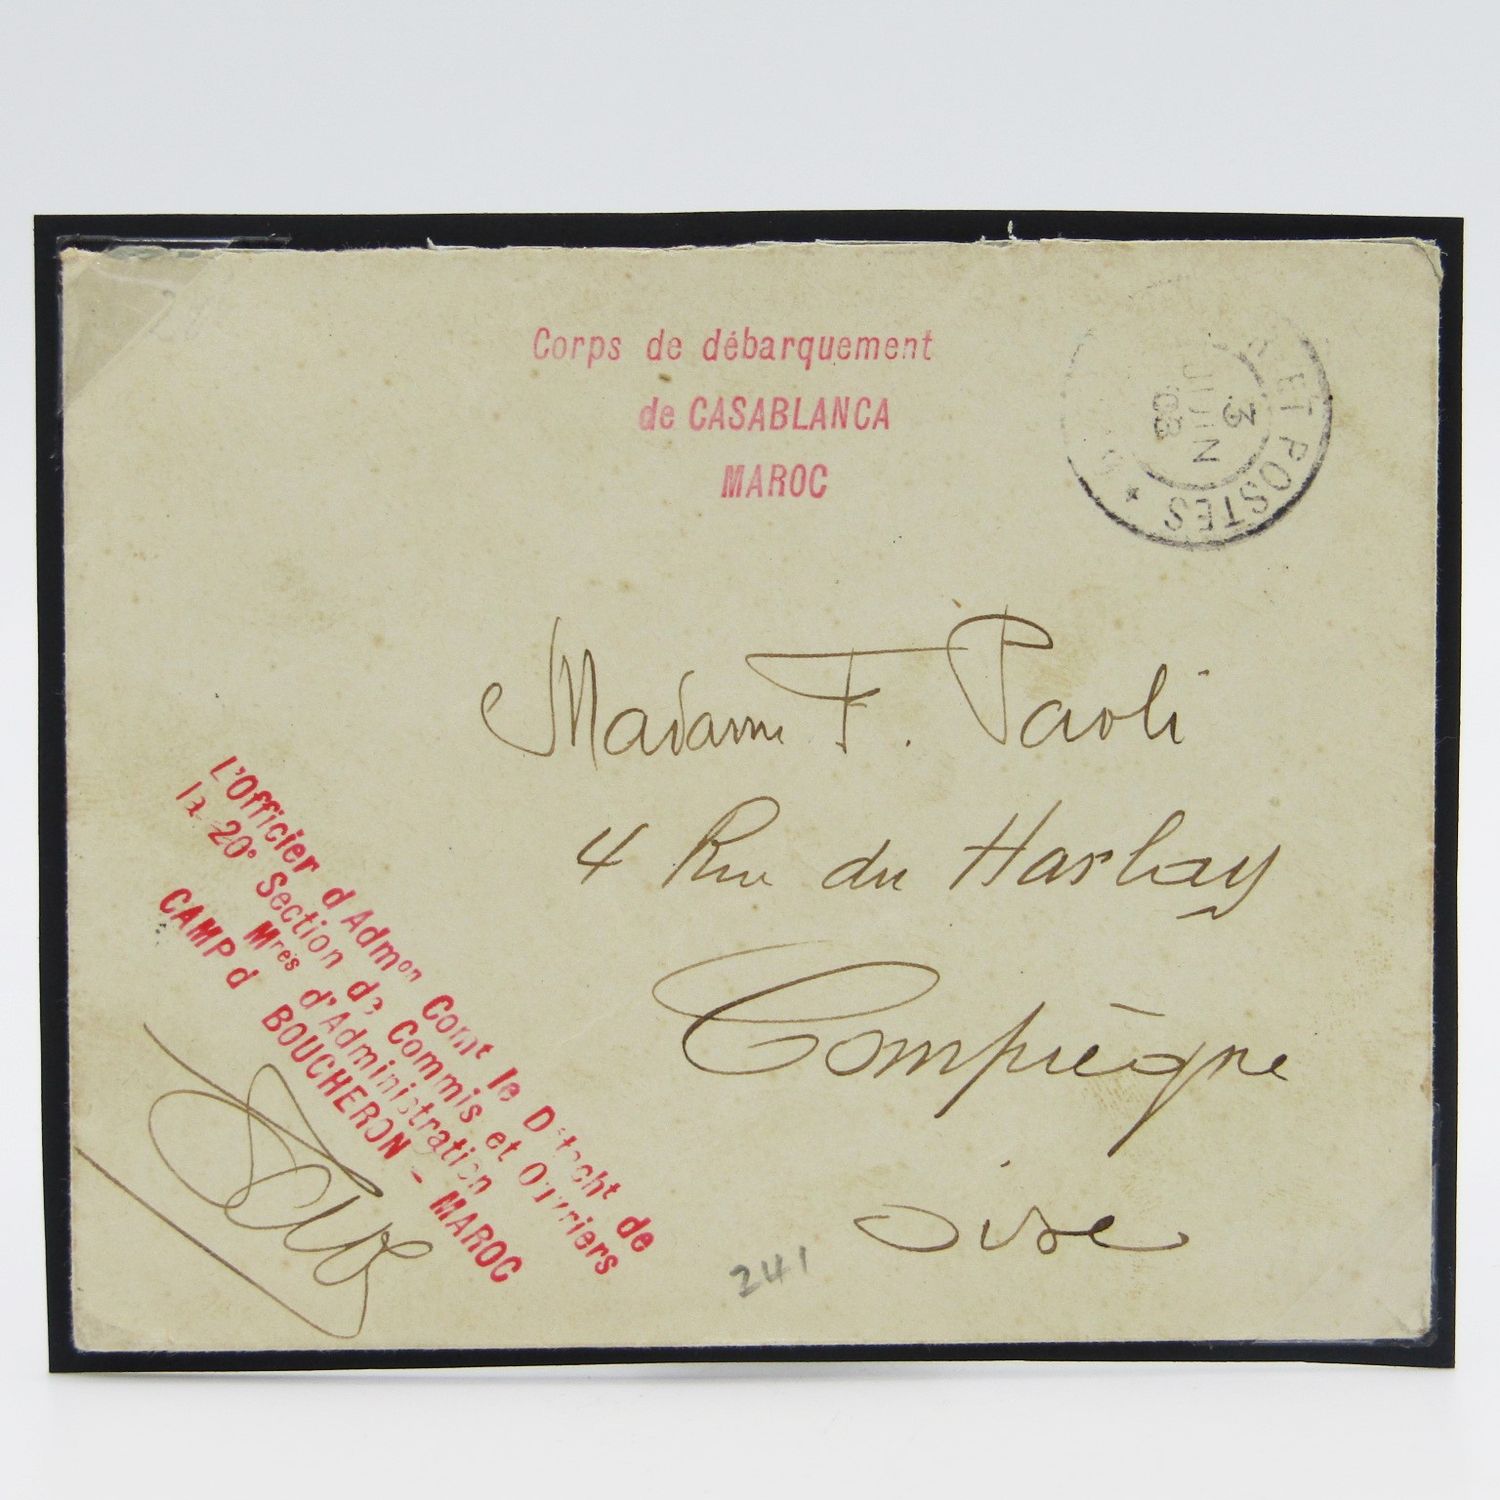 Corps de débarquement
de CASABLANCA
MAROC
ET POSTES *
3
JUIN
08
Madame F. Paoli
4 Rue du Harlay
Compiègne
Oise
L'Officier d'Admon Comt le Détacht de
la 20e Section de Commis et Ouvriers
Mres d'Administration
CAMP d BOUCHERON - MAROC
241